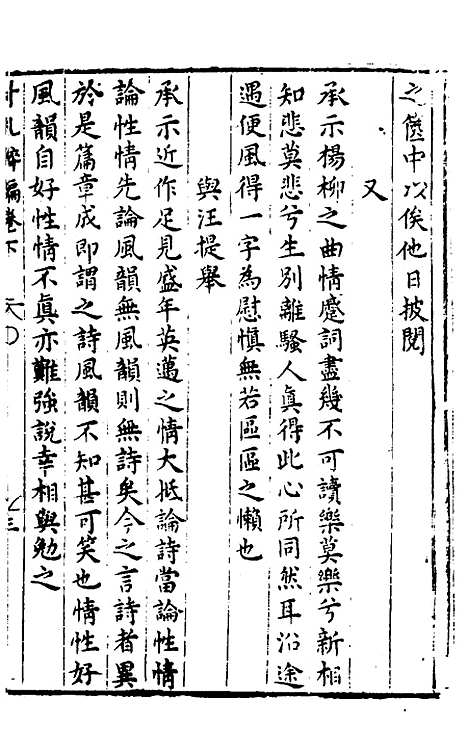 之篋中以俟他日披閱
又
承示楊柳之曲情蹙詞盡幾不可讀樂莫樂兮新相
知悲莫悲兮生別離騷人真得此心所同然耳沿途
遇便風得一字為慰慎無若區區之懶也
與汪提舉
承示近作足見盛年英邁之情大抵論詩當論性情
論性情先論風韻無風韻則無詩矣今之言詩者異
於是篇章成即謂之詩風韻不知甚可笑也情性好
風韻自好性情不真亦難強說幸相與勉之
卷下